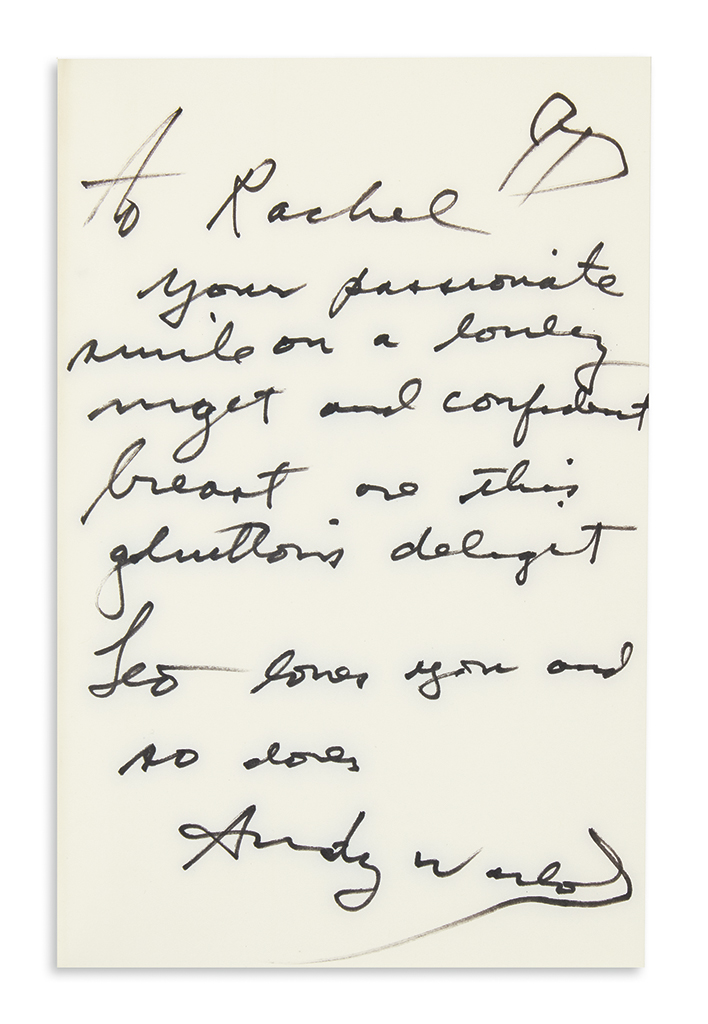 To Rachel
your passionate
smile on a lonley
niget and confident
breast are this
gluttonis deleget
Leo loves you and
so does
Andy Warhol